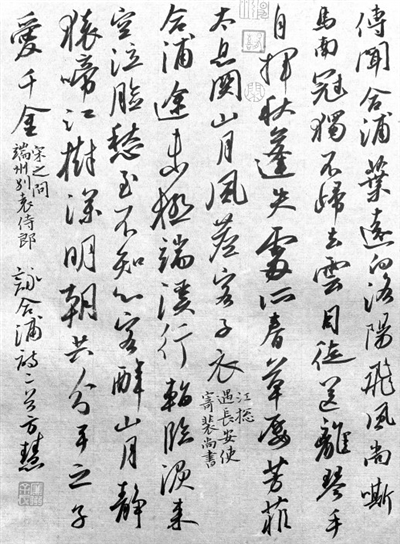 傳聞合浦葉遠向洛陽飛風尚嘶
馬南冠獨不歸去雲目徒送離琴手
自揮秋蓬失處所春草屢芳菲
太息關山月風塵客子衣
江捴
遇長安使
寄裴尚書
合浦途未極端溪行暫臨淚來
空泣臉愁至不知心客醉山月靜
猿啼江樹深明朝共分手之子
愛千金
宋之問
端州別袁侍郎
合浦詩二首方慧